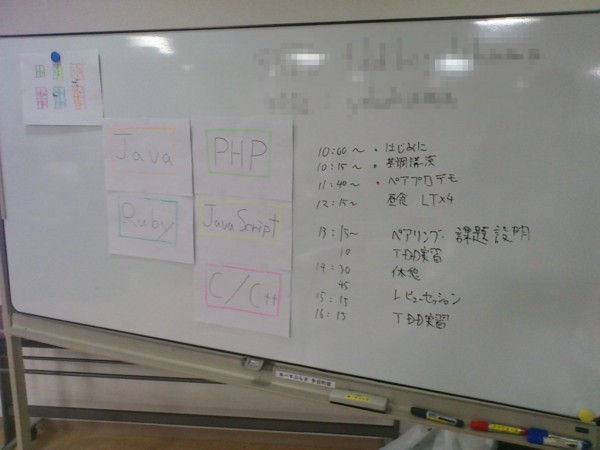 Java
PHP
Ruby
JavaScript
C/C++
10:00~ ・はじめに
10:15~ ・基調講演
11:40~ ・ペアプロデモ
12:15~ 昼食 LT×4
13:15~ ペアリング・課題説明
TDD実習
14:30 休憩
45
15:15 レビューセッション
16:15 TDD実習